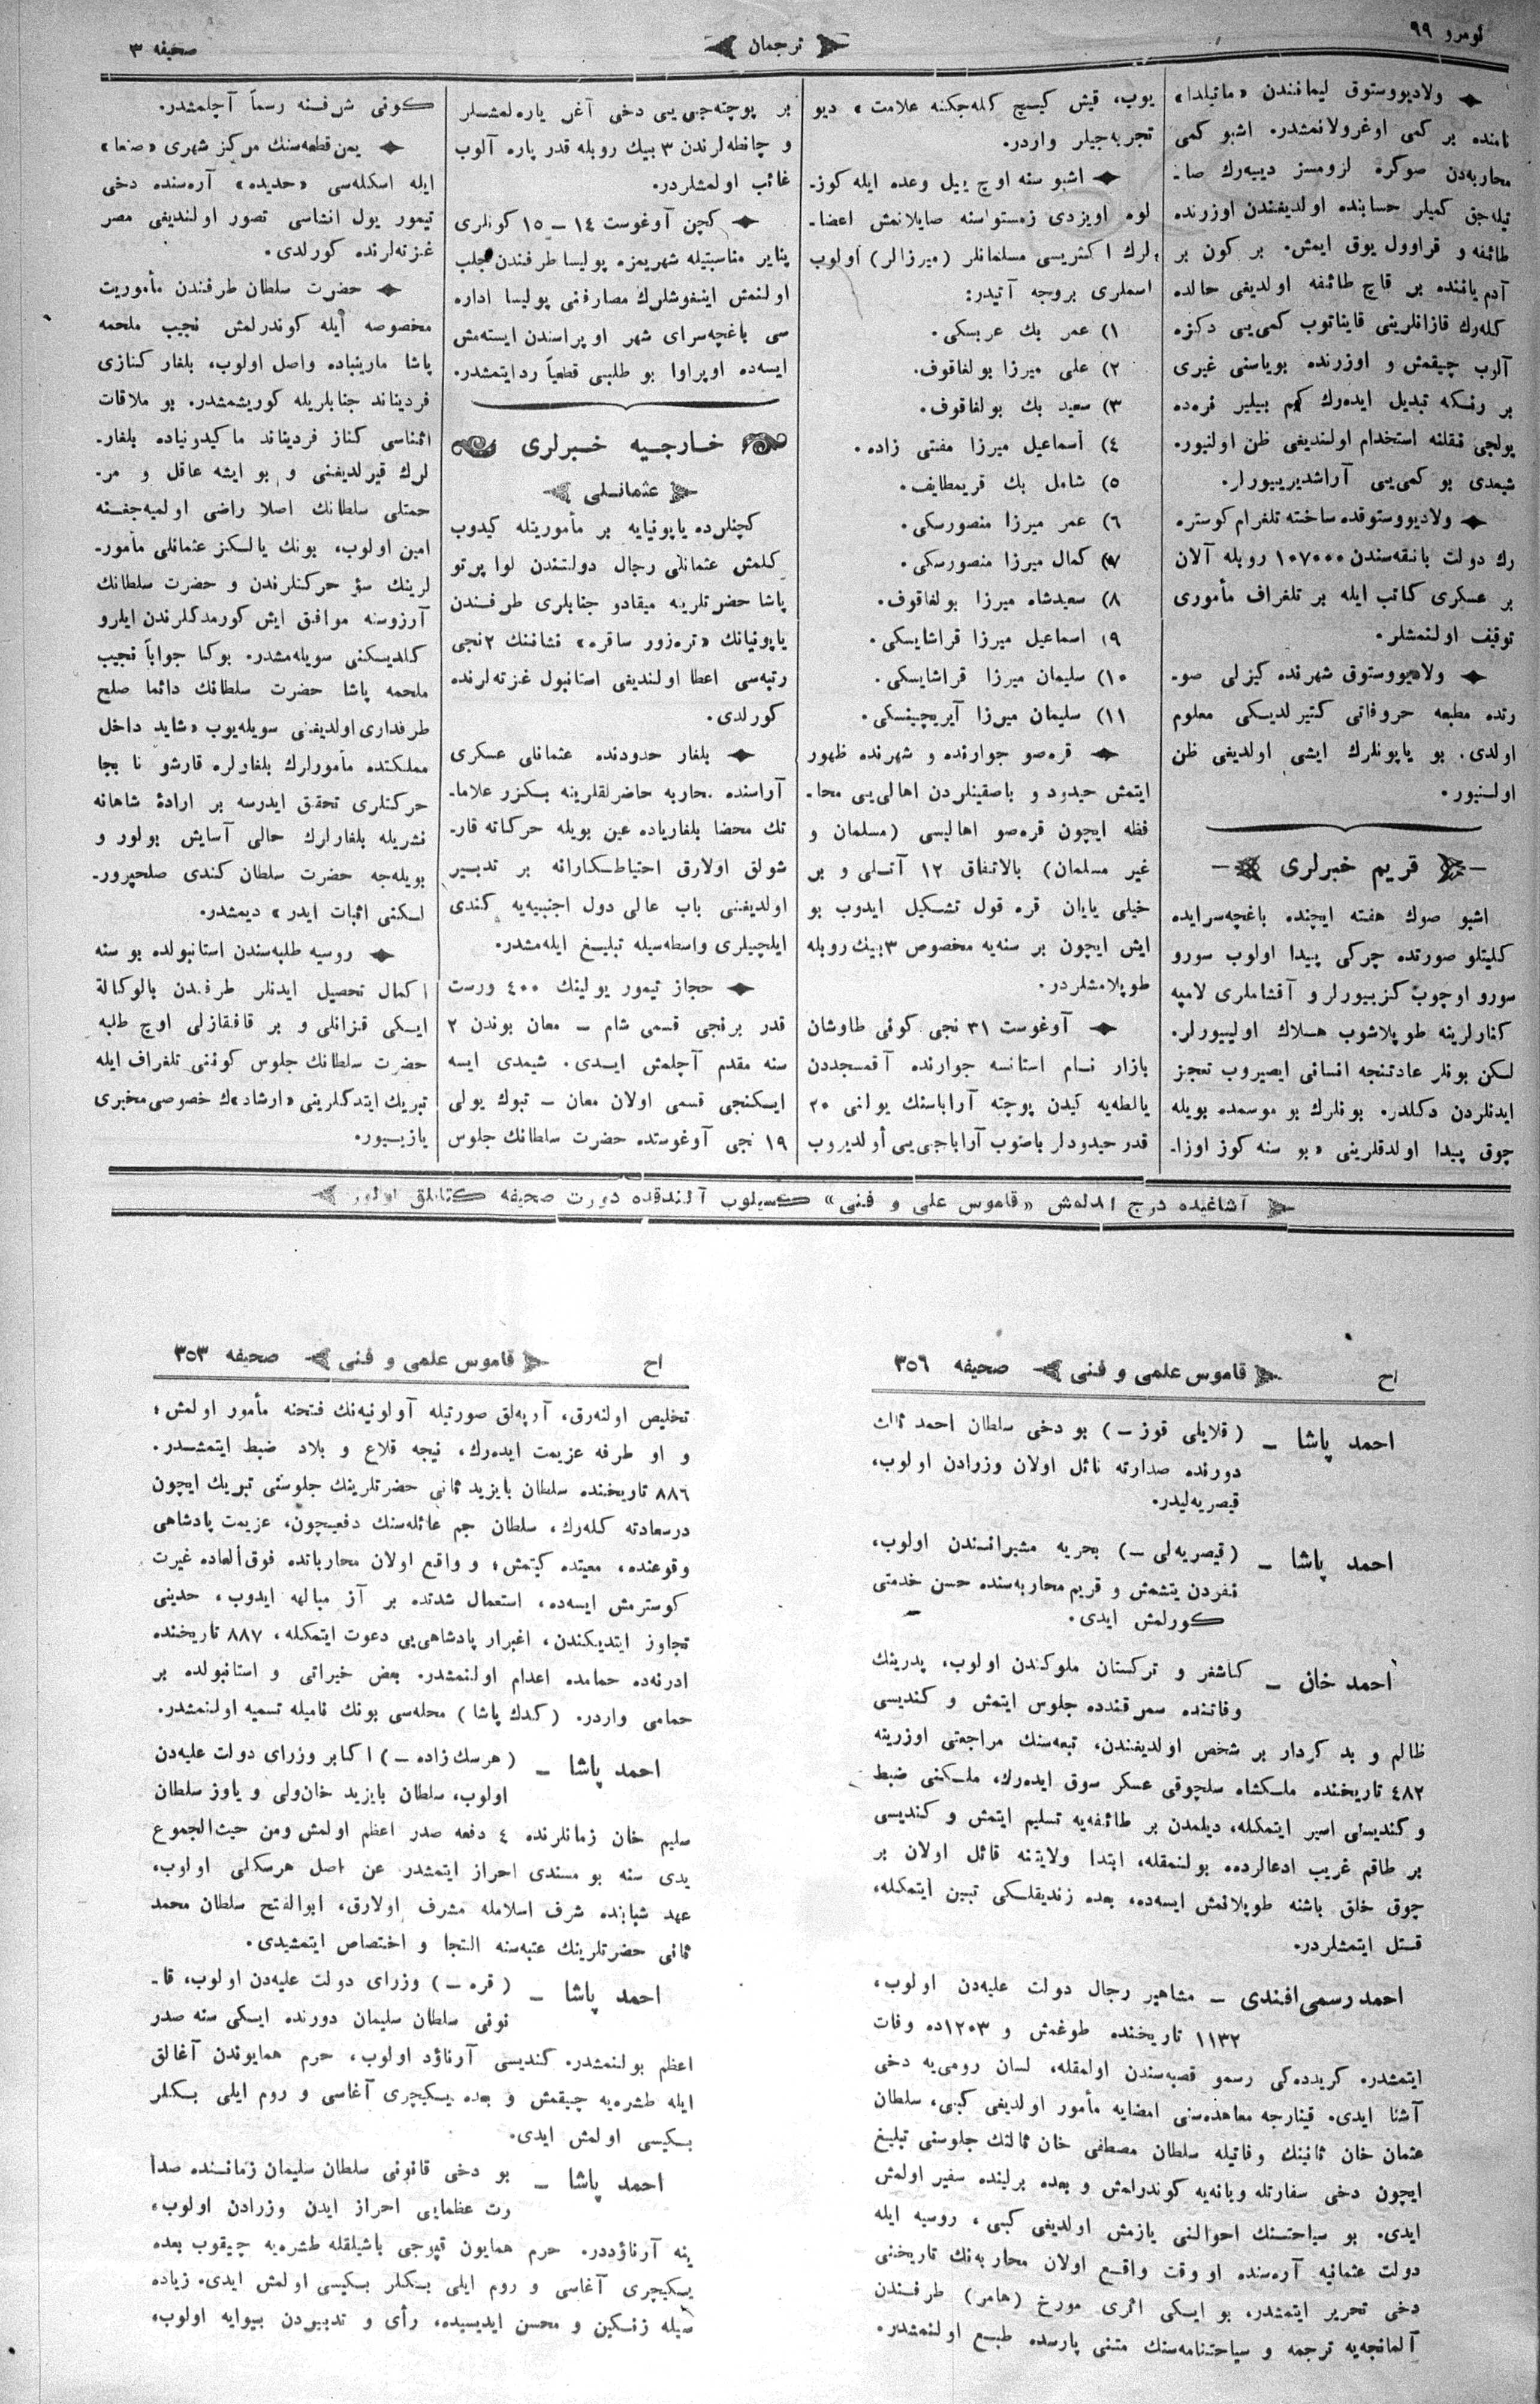 نومرو ٩٩
ترجمان
صحيفه ٣
ولاديووستوق ليمانندن «ماتيلدا»
نامنده بر كمى اوغرولانمشدر. اشبو كمى
محاربه‌دن صوكره لزومسز دييه‌رك صا-
تيله‌جق كميلر حسابنده اولديغندن اوزرنده
طائفه و قراوول يوق ايمش. بر كون بر
آدم ياننده بر قاچ طائفه اولديغى حالده
كله‌رك قازانلرينى قايناتوب كمى‌يى دكزه
آلوب چيقمش و اوزرنده بوياسنى غيرى
بر رنكه تبديل ايده‌رك كيم بيلير نره‌ده
يولجى نقلنه استخدام اولنديغى ظن اولنيور.
شيمدى بو كمى‌يى آراشديرييورلر.
ولاديووستوقده ساخته تلغرام كوستره
رك دولت بانقه‌سندن ١٠٧٠٠٠ روبله آلان
بر عسكرى كاتب ايله بر تلغراف مأمورى
توقيف اولنمشلر.
ولاديووستوق شهرنده كيزلى صو-
رتده مطبعه حروفاتى كتيرلديكى معلوم
اولدى. بو ياپونلرك ايشى اولديغى ظن
اولنيور.
قريم خبرلرى
اشبو صوك هفته ايچنده باغچه‌سرايده
كليتلو صورتده چركى پيدا اولوب سورو
سورو اوچوب كزييورلر و آقشاملرى لامپه
كنارلرينه طوپلاشوب هلاك اولييورلر.
لكن بونلر عادتنجه انسانى ايصيروب تعجز
ايدنلردن دكلدر. بونلرك بو موسمده بويله
چوق پيدا اولدقلرينى «بو سنه كوز اوزا-
يوب، قيش كيچ كله‌جكنه علامت» ديو
تجربه‌جيلر واردر.
اشبو سنه اوچ ييل وعده ايله كوز-
لوه اويزدى زمستواسنه صايلانمش اعضا-
لرك اكثريسى مسلمانلر (ميرزالر) اولوب
اسملرى بروجه آتيدر:
١) عمر بك عربسكى.
٢) على ميرزا بولغاقوف.
٣) سعيد بك بولغاقوف.
٤) اسماعيل ميرزا مفتى زاده.
٥) شامل بك قريمطايف.
٦) عمر ميرزا منصورسكى.
٧) كمال ميرزا منصورسكى.
٨) سعيدشاه ميرزا بولغاقوف.
٩) اسماعيل ميرزا قراشايسكى.
١٠) سليمان ميرزا قراشايسكى.
١١) سليمان ميرزا آيريچينسكى.
قره‌صو جوارنده و شهرنده ظهور
ايتمش حيدود و باصقينلردن اهالى‌يى محا-
فظه ايچون قره‌صو اهاليسى (مسلمان و
غير مسلمان) بالاتفاق ١٢ آتلى و بر
خيلى يايان قره قول تشكيل ايدوب بو
ايش ايچون بر سنه‌يه مخصوص ٣ بيك روبله
طوپلامشلردر.
آوغوست ٣١ نجى كونى طاوشان
بازار نام استانسه جوارنده آقمسجددن
يالطه‌يه كيدن پوچته آراباسنك يولنى ٢٠
قدر حيدودلر باصوب آراباجى‌يى أولديروب
بر پوچته‌جى‌يى دخى آغر ياره‌لمشلر
و چانطه‌لرندن ٣ بيك روبله قدر پاره آلوب
غائب اولمشلردر.
كچن آوغوست ١٤ – ١٥ كونلرى
پناير مناسبتيله شهريمزه پوليسا طرفندن جلب
اولنمش اينغوشلرك مصارفنى پوليسا اداره
سى باغچه‌سراى شهر اوپراسندن ايسته‌مش
ايسه‌ده اوپراوا بو طلبى قطعياً رد ايتمشدر.
خارجيه خبرلرى
عثمانلى
كچنلرده ياپونيايه بر مأموريتله كيدوب
كلمش عثمانلى رجال دولتندن لوا پرتو
پاشا حضرتلرينه ميقادو جنابلرى طرفندن
ياپونيانك «تره‌زور ساقره» نشاننك ٢نجى
رتبه‌سى اعطا اولنديغى استانبول غزته‌لرنده
كورلدى.
بلغار حدودنده عثمانلى عسكرى
آراسنده محاربه حاضرلقلرينه بكزر علاما-
تك محضا بلغارياده عين بويله حركاته قار-
شولق اولارق احتياطكارانه بر تدبير
اولديغنى باب عالى دول اجنبيه‌يه كندى
ايلچيلرى واسطه‌سيله تبليغ ايله‌مشدر.
حجاز تيمور يولينك ٤٠٠ ورست
قدر برنجى قسمى شام – معان بوندن ٢
سنه مقدم آچلمش ايدى. شيمدى ايسه
ايكنجى قسمى اولان معان – تبوك يولى
١٩ نجى آوغوستده حضرت سلطانك جلوس
كونى شرفنه رسماً آچلمشدر.
يمن قطعه‌سنك مركز شهرى «صنعا»
ايله اسكله‌سى «حديده» آره‌سنده دخى
تيمور يول انشاسى تصور اولنديغى مصر
غزته‌لرنده كورلدى.
حضرت سلطان طرفندن مأموريت
مخصوصه ايله كوندرلمش نجيب ملحمه
پاشا مارينباده واصل اولوب، بلغار كنازى
فرديناند جنابلريله كوريشمشدر. بو ملاقات
اثناسى كناز فرديناند ماكيدونياده بلغار-
لرك قيرلديغنى و بو ايشه عاقل و مر-
حمتلى سلطانك اصلا راضى اولميه‌جغنه
امين اولوب، بونك يالكز عثمانلى مأمور-
لرينك سؤ حركتلرندن و حضرت سلطانك
آرزوسنه موافق ايش كورمدكلرندن ايلرو
كلديكنى سويله‌مشدر. بوكا جواباً نجيب
ملحمه پاشا حضرت سلطانك دائما صلح
طرفدارى اولديغنى سويله‌يوب «شايد داخل
مملكتده مأمورلرك بلغارلره قارشو نا بجا
حركتلرى تحقق ايدرسه بر ارادۀ شاهانه
نشريله بلغارلرك حالى آسايش بولور و
بويله‌جه حضرت سلطان كندى صلحپرور-
لكنى اثبات ايدر» ديمشدر.
روسيه طلبه‌سندن استانبولده بو سنه
اكمال تحصيل ايدنلر طرفندن بالوكالة
ايكى قزانلى و بر قافقازلى اوچ طلبه
حضرت سلطانك جلوس كوننى تلغراف ايله
تبريك ايتدكلرينى «ارشاد»ك خصوصى مخبرى
يازييور.
آشاغيده درج ايدلمش «قاموس علمى و فنى» كسيلوب آلندقده دورت صحيفه كتابلق اولور
اح
قاموس علمى و فنى
صحيفه ٣٥٦
احمد پاشا – (قلايلى قوز –) بو دخى سلطان احمد ثالث
دورنده صدارته نائل اولان وزرادن اولوب،
قيصريه‌ليدر.
احمد پاشا – (قيصريه‌لى –) بحريه مشيرانندن اولوب،
نفردن يتشمش و قريم محاربه‌سنده حسن خدمتى
كورلمش ايدى.
احمد خان – كاشغر و تركستان ملوكندن اولوب، پدرينك
وفاتنده سمرقندده جلوس ايتمش و كنديسى
ظالم و بد كردار بر شخص اولديغندن، تبعه‌سنك مراجعتى اوزرينه
٤٨٢ تاريخنده ملكشاه سلجوقى عسكر سوق ايده‌رك، ملكنى ضبط
و كنديسنى اسير ايتمكله، ديلمدن بر طائفه‌يه تسليم ايتمش و كنديسى
بر طاقم غريب ادعالرده بولنمقله، ابتدا ولايتنه قائل اولان بر
چوق خلق باشنه طوپلانمش ايسه‌ده، بعده زنديقلكى تبين ايتمكله،
قتل ايتمشلردر.
احمد رسمى افندى – مشاهير رجال دولت عليه‌دن اولوب،
١١٣٢ تاريخنده طوغمش و ١٢٠٣ده وفات
ايتمشدر. كريدده‌كى رسمو قصبه‌سندن اولمقله، لسان رومى‌يه دخى
آشنا ايدى. قينارجه معاهده‌سنى امضايه مأمور اولديغى كبى، سلطان
عثمان خان ثانينك وفاتيله سلطان مصطفى خان ثالثك جلوسنى تبليغ
ايچون دخى سفارتله ويانه‌يه كوندرلمش و بعده برلينده سفير اولمش
ايدى. بو سياحتنك احوالنى يازمش اولديغى كبى، روسيه ايله
دولت عثمانيه آره‌سنده او وقت واقع اولان محاربه‌نك تاريخنى
دخى تحرير ايتمشدر. بو ايكى اثرى مورخ (هامر) طرفندن
آلمانجه‌يه ترجمه و سياحتنامه‌سنك متنى پارسده طبع اولنمشدر.
اح
قاموس علمى و فنى
صحيفه ٣٥٣
تخليص اولنه‌رق، آرپه‌لق صورتيله آولونيه‌نك فتحنه مأمور اولمش؛
و او طرفه عزيمت ايده‌رك، نيجه قلاع و بلاد ضبط ايتمشدر.
٨٨٦ تاريخنده سلطان بايزيد ثانى حضرتلرينك جلوسنى تبريك ايچون
درسعادته كله‌رك، سلطان جم غائله‌سنك دفعيچون، عزيمت پادشاهى
وقوعنده، معيتده كيتمش؛ و واقع اولان محارباتده فوق العاده غيرت
كوسترمش ايسه‌ده، استعمال شدتده بر آز مبالغه ايدوب، حدينى
تجاوز ايتديكندن، اغبرار پادشاهى‌يى دعوت ايتمكله، ٨٨٧ تاريخنده
ادرنه‌ده حمامده اعدام اولنمشدر. بعض خيراتى و استانبولده بر
حمامى واردر. (كدك پاشا) محله‌سى بونك ناميله تسميه اولنمشدر.
احمد پاشا – (هرسك زاده –) اكابر وزراى دولت عليه‌دن
اولوب، سلطان بايزيد خان ولى و ياوز سلطان
سليم خان زمانلرنده ٤ دفعه صدر اعظم اولمش ومن حيث المجموع
يدى سنه بو مسندى احراز ايتمشدر عن اصل هرسكلى اولوب،
عهد شبابنده شرف اسلامله مشرف اولارق، ابو الفتح سلطان محمد
ثانى حضرتلرينك عتبه‌سنه التجا و اختصاص ايتمشيدى.
احمد پاشا – (قره –) وزراى دولت عليه‌دن اولوب، قا-
نونى سلطان سليمان دورنده ايكى سنه صدر
اعظم بولنمشدر. كنديسى آرناؤد اولوب، حرم همايوندن آغالق
ايله طشره‌يه چيقمش و بعده يكيچرى آغاسى و روم ايلى بكلر
بكيسى اولمش ايدى.
احمد پاشا – بو دخى قانونى سلطان سليمان زماننده صدا
رت عظمايى احراز ايدن وزرادن اولوب،
ينه آرناؤددر. حرم همايون قپوجى باشيلقله طشره‌يه چيقوب بعده
يكيچرى آغاسى و روم ايلى بكلر بكيسى اولمش ايدى. زياده
سيله زنكين و محسن ايديسيده، رأى و تدبيردن بيوايه اولوب،